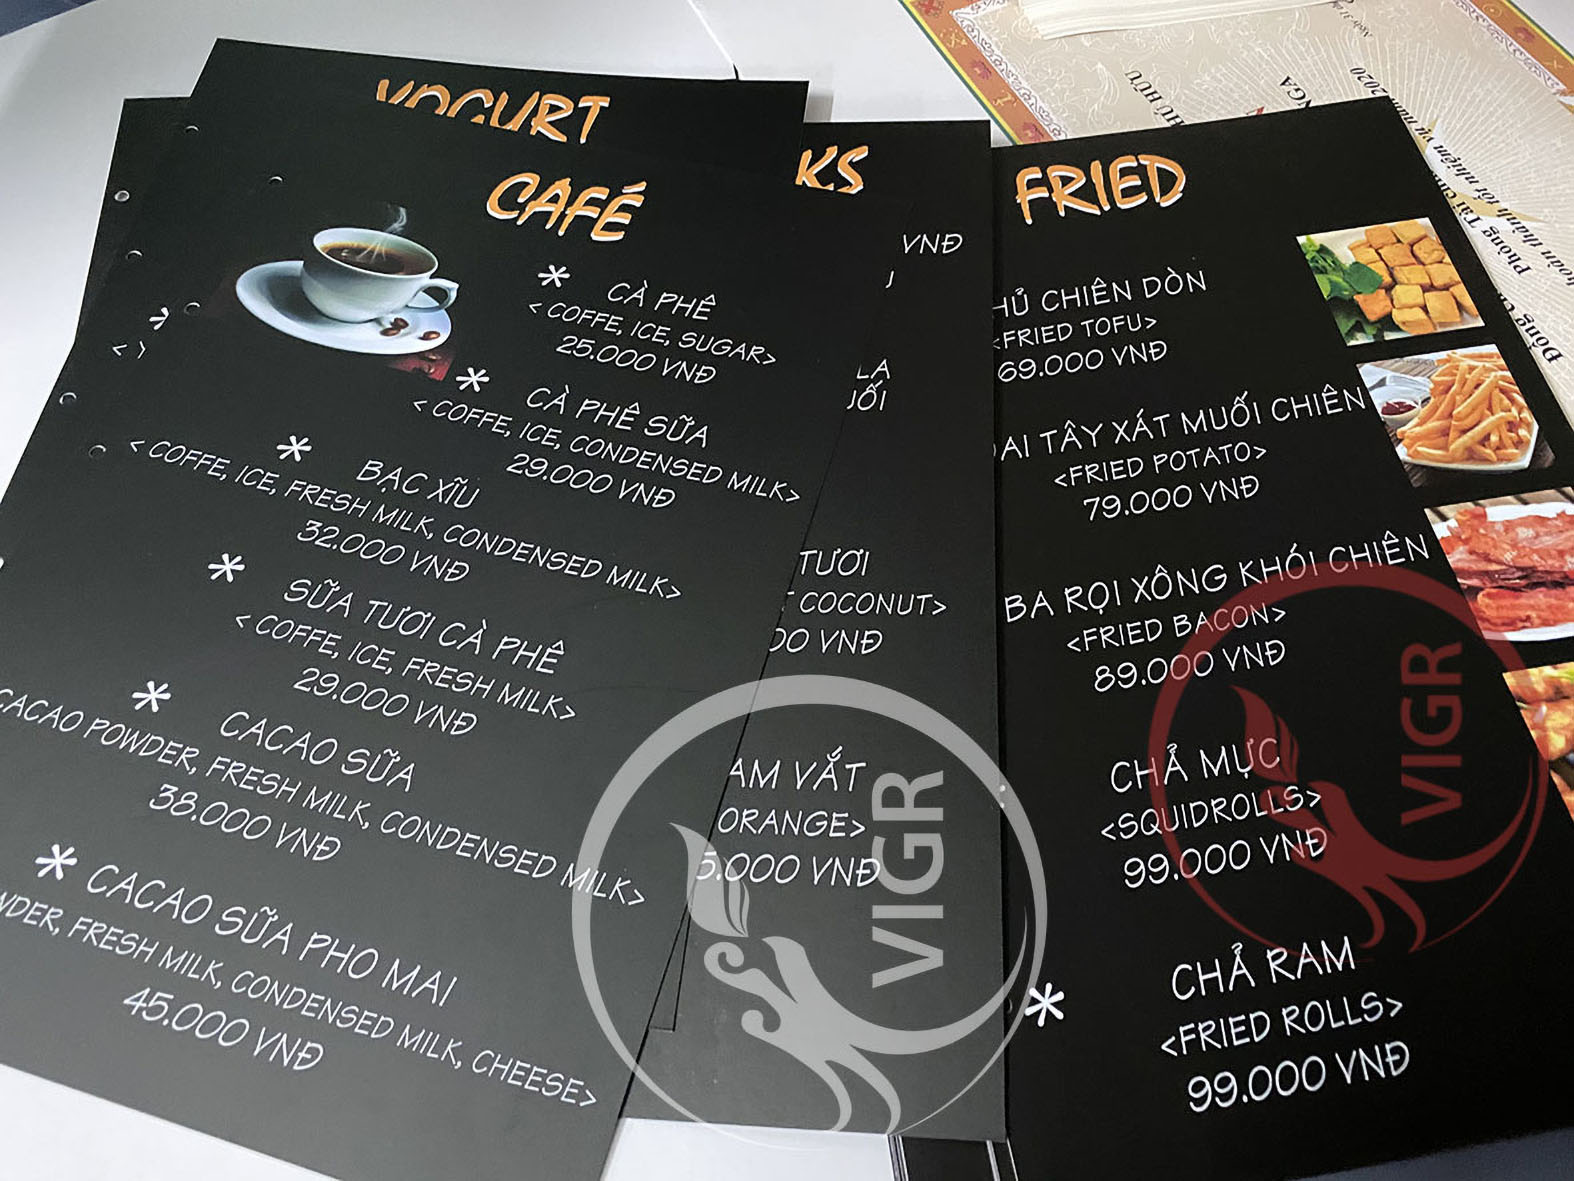 YOGURT
CAFÉ
* CÀ PHÊ
< COFFE, ICE, SUGAR>
25.000 VNĐ
* CÀ PHÊ SỮA
< COFFE, ICE, CONDENSED MILK>
29.000 VNĐ
* BẠC XĨU
< COFFE, ICE, FRESH MILK, CONDENSED MILK>
32.000 VNĐ
* SỮA TƯƠI CÀ PHÊ
< COFFE, ICE, FRESH MILK>
29.000 VNĐ
* CACAO SỮA
CACAO POWDER, FRESH MILK, CONDENSED MILK>
38.000 VNĐ
* CACAO SỮA PHO MAI
WDER, FRESH MILK, CONDENSED MILK, CHEESE>
45.000 VNĐ
KS
VNĐ
LA
UỐI
TƯƠI
COCONUT>
00 VNĐ
AM VẮT
ORANGE>
5.000 VNĐ
FRIED
HỦ CHIÊN DÒN
<FRIED TOFU>
69.000 VNĐ
OAI TÂY XÁT MUỐI CHIÊN
<FRIED POTATO>
79.000 VNĐ
BA RỌI XÔNG KHÓI CHIÊN
<FRIED BACON>
89.000 VNĐ
CHẢ MỰC
<SQUIDROLLS>
99.000 VNĐ
* CHẢ RAM
<FRIED ROLLS>
99.000 VNĐ
VIGR
VIGR
HỮU HỨU
NGA
2020
Phòng Tài
hoàn thành tốt nhiệm vụ năm
Đồng
Ngày 31